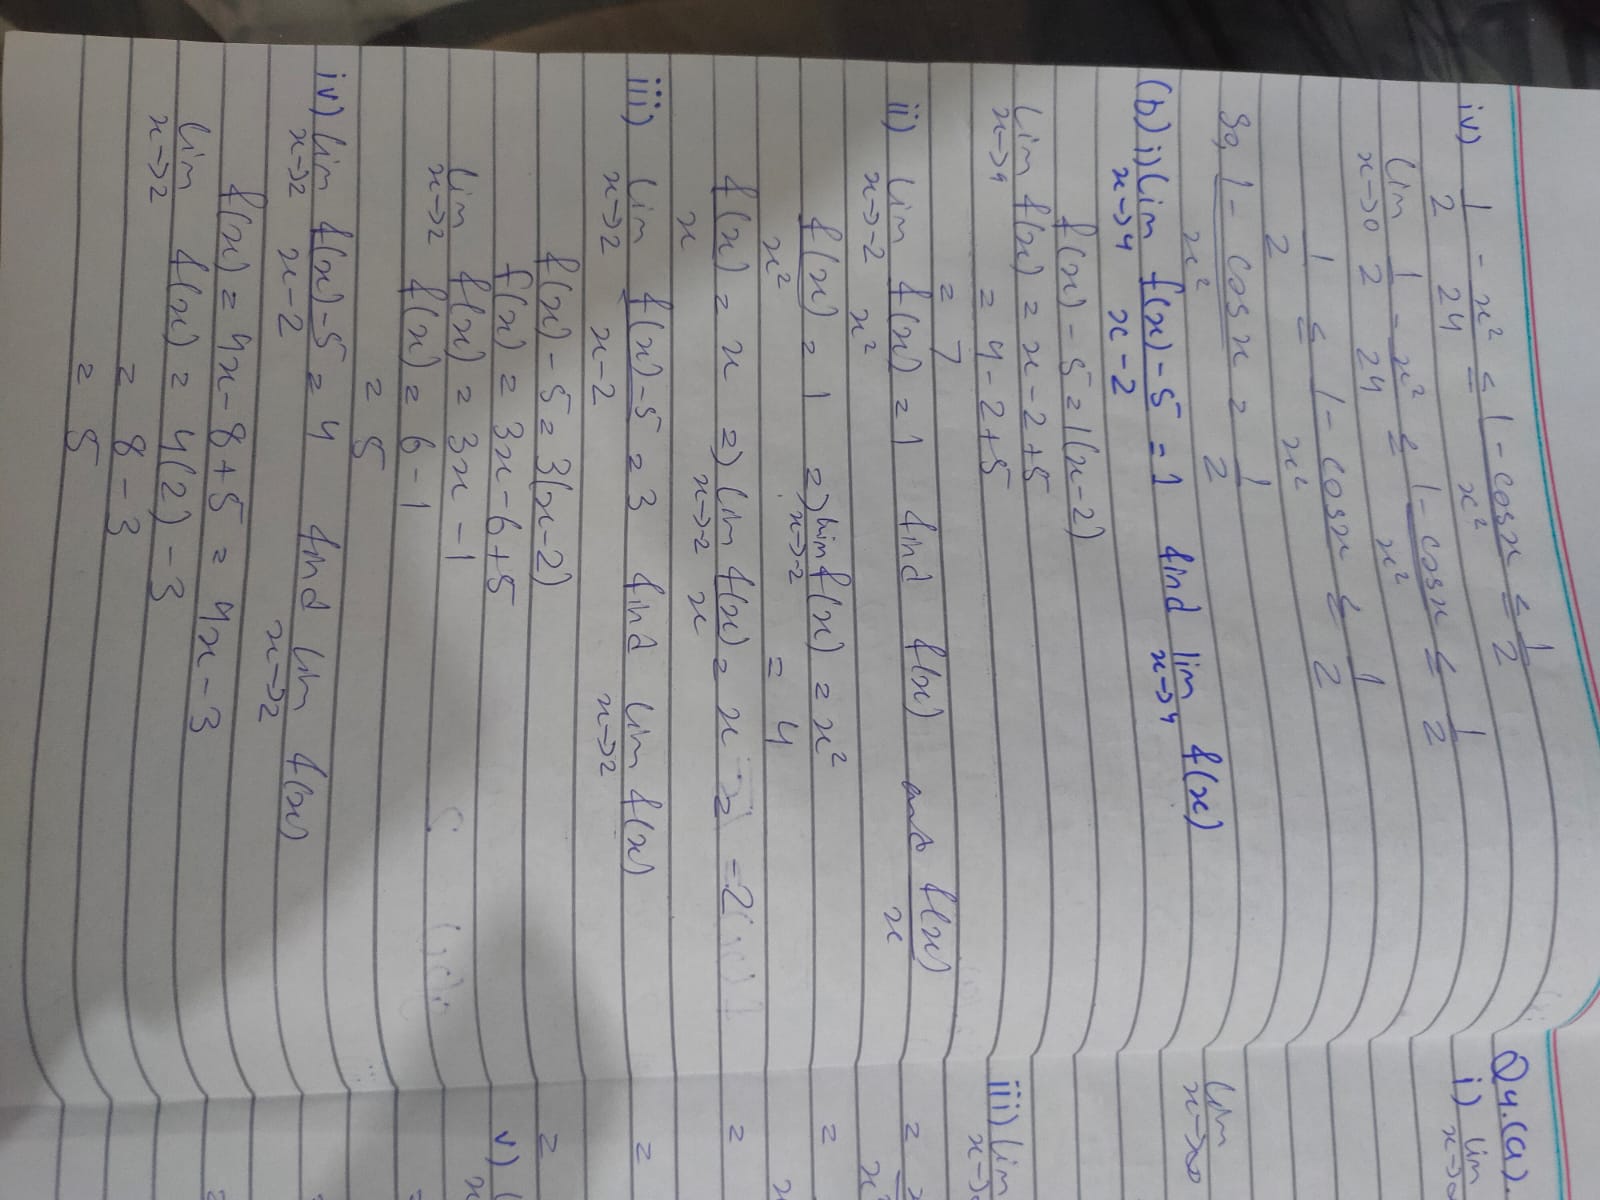 iv) 1/2 - x²/24 ≤ 1 - cosx/x² ≤ 1/2
lim x→0 1/2 - x²/24 ≤ 1 - cosx/x² ≤ 1/2
1/2 ≤ 1 - cosx/x² ≤ 1/2
So, 1 - cosx/x² = 1/2
(b) i) Lim x→4 f(x)-5/x-2 = 1 find lim x→4 f(x)
f(x) - 5 = 1(x-2)
Lim x→4 f(x) = x-2+5
= 4-2+5
= 7
ii) Lim x→-2 f(x)/x² = 1 find f(x) and f(x)/x
f(x)/x² = 1 => lim x→-2 f(x) = x²
= 4
f(x)/x = x => Lim x→-2 f(x)/x = x = -2
iii) Lim x→2 f(x)-5/x-2 = 3 find Lim x→2 f(x)
f(x) - 5 = 3(x-2)
f(x) = 3x-6+5
Lim x→2 f(x) = 3x - 1
f(x) = 6-1
= 5
iv) Lim x→2 f(x)-5/x-2 = 4 find Lim x→2 f(x)
f(x) = 4x-8+5 = 4x-3
Lim x→2 f(x) = 4(2) - 3
= 8-3
= 5
Q4.(a).
i) lim x→∞
lim x→∞
iii) lim
=
=
=
=
=
v)